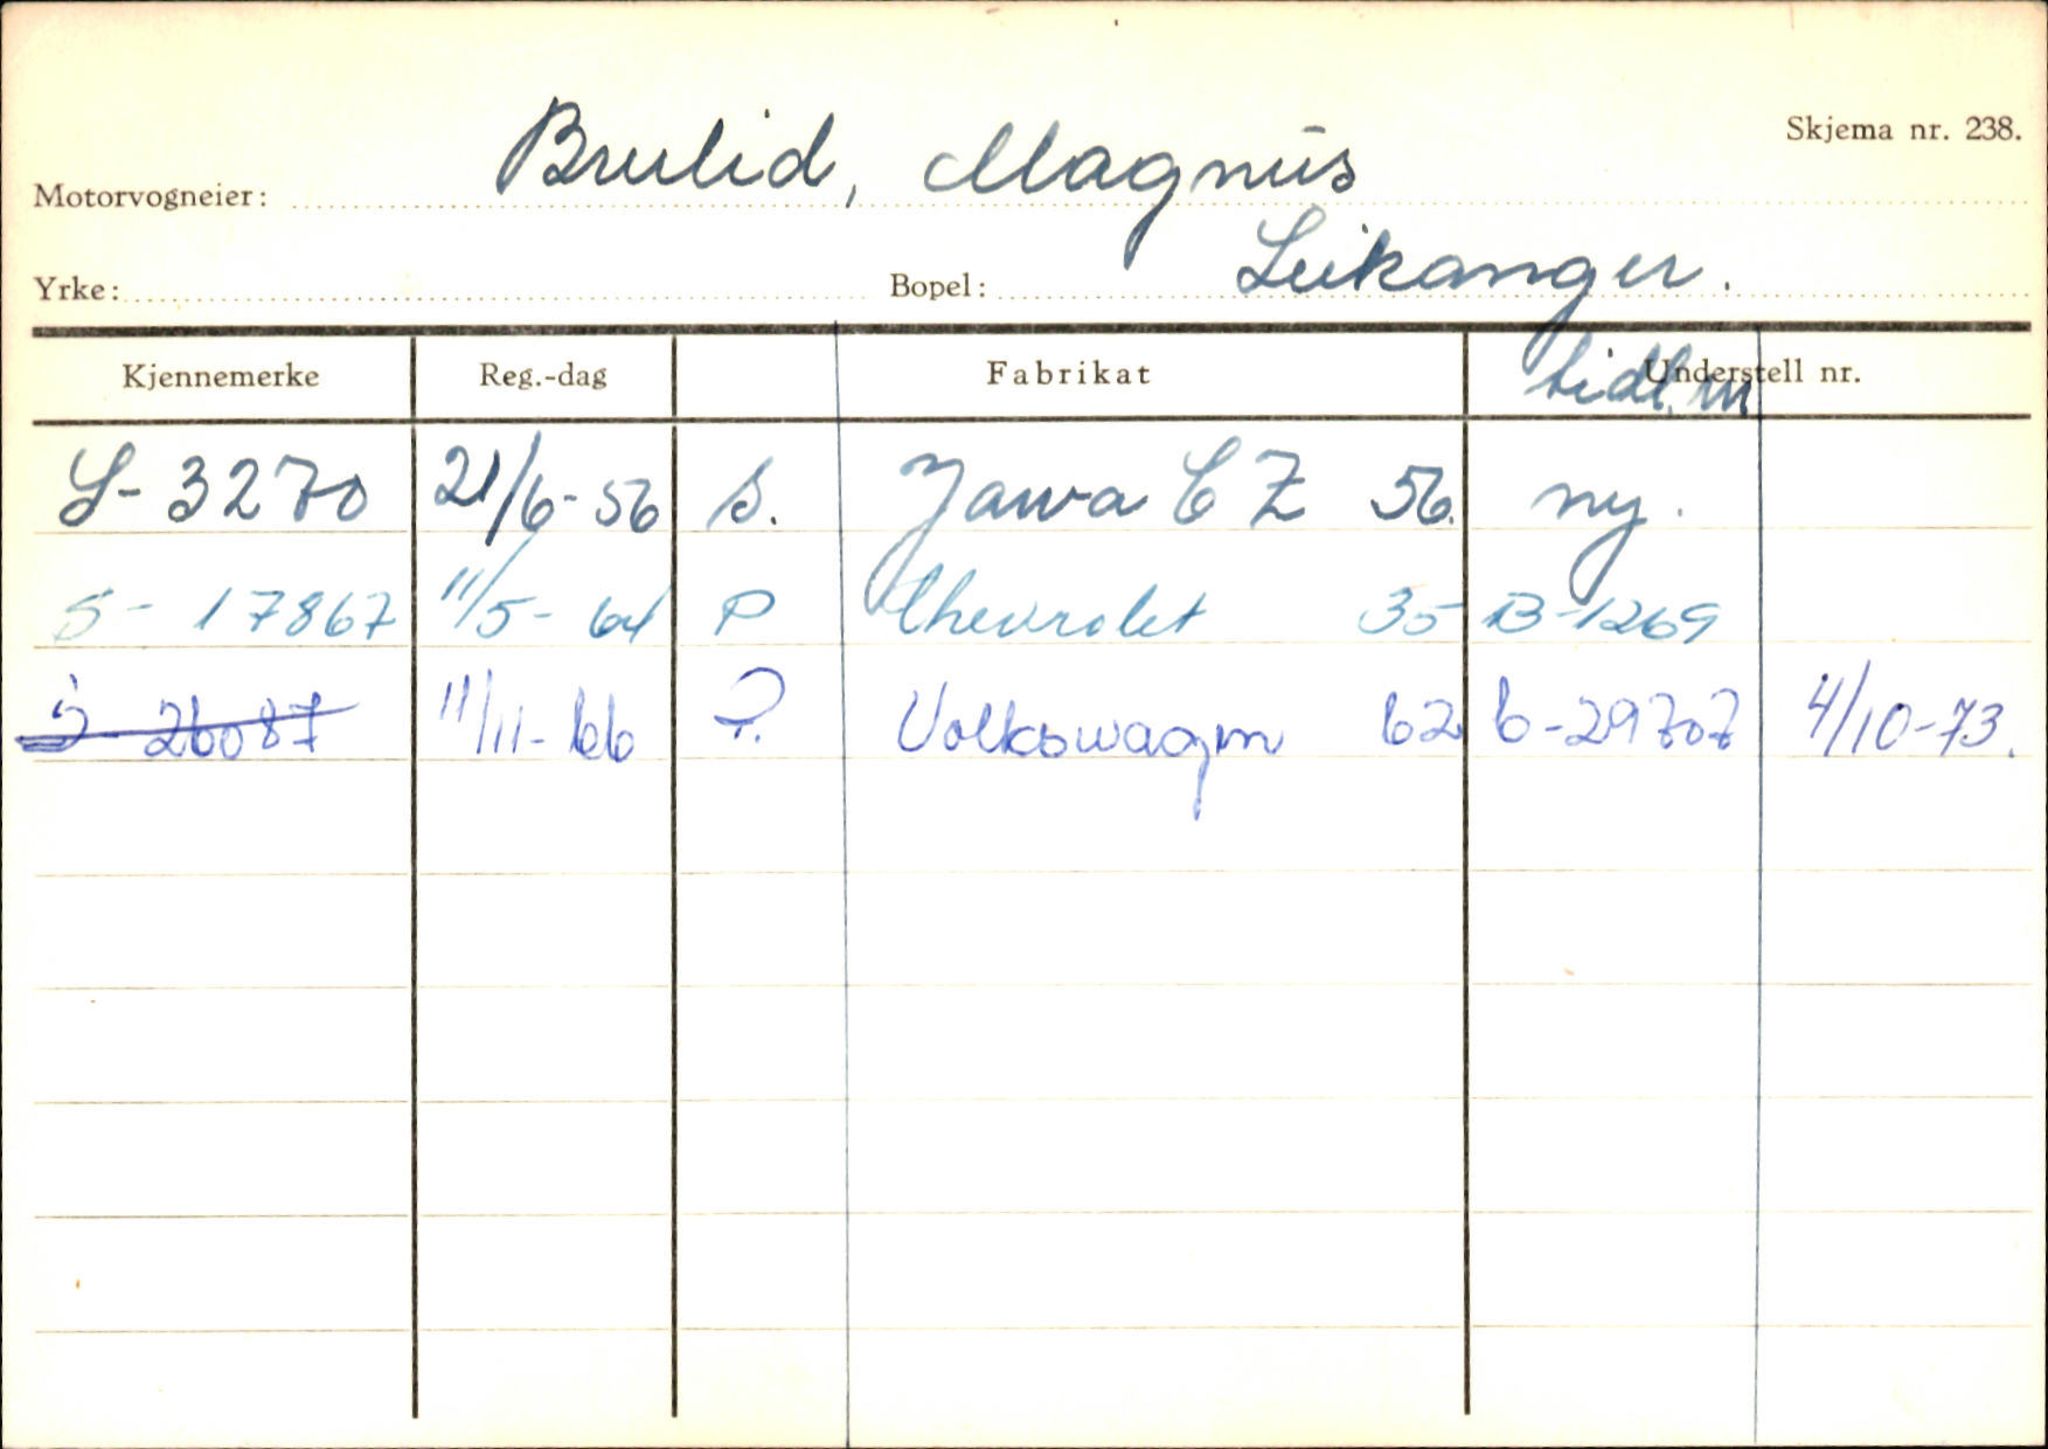 Skjema nr. 238.
Motorvogneier: Brulid, Magnus
Yrke: Bopel: Leikanger.
Kjennemerke Reg.-dag Fabrikat Understell nr.
tidl. m
S- 3270 21/6-56 s. Jawa CZ 56. ny.
S- 17867 11/5-64 P Chevrolet 35 B-1269
S- 26087 11/11-66 P. Volkswagen 62 6-29707 4/10-73.